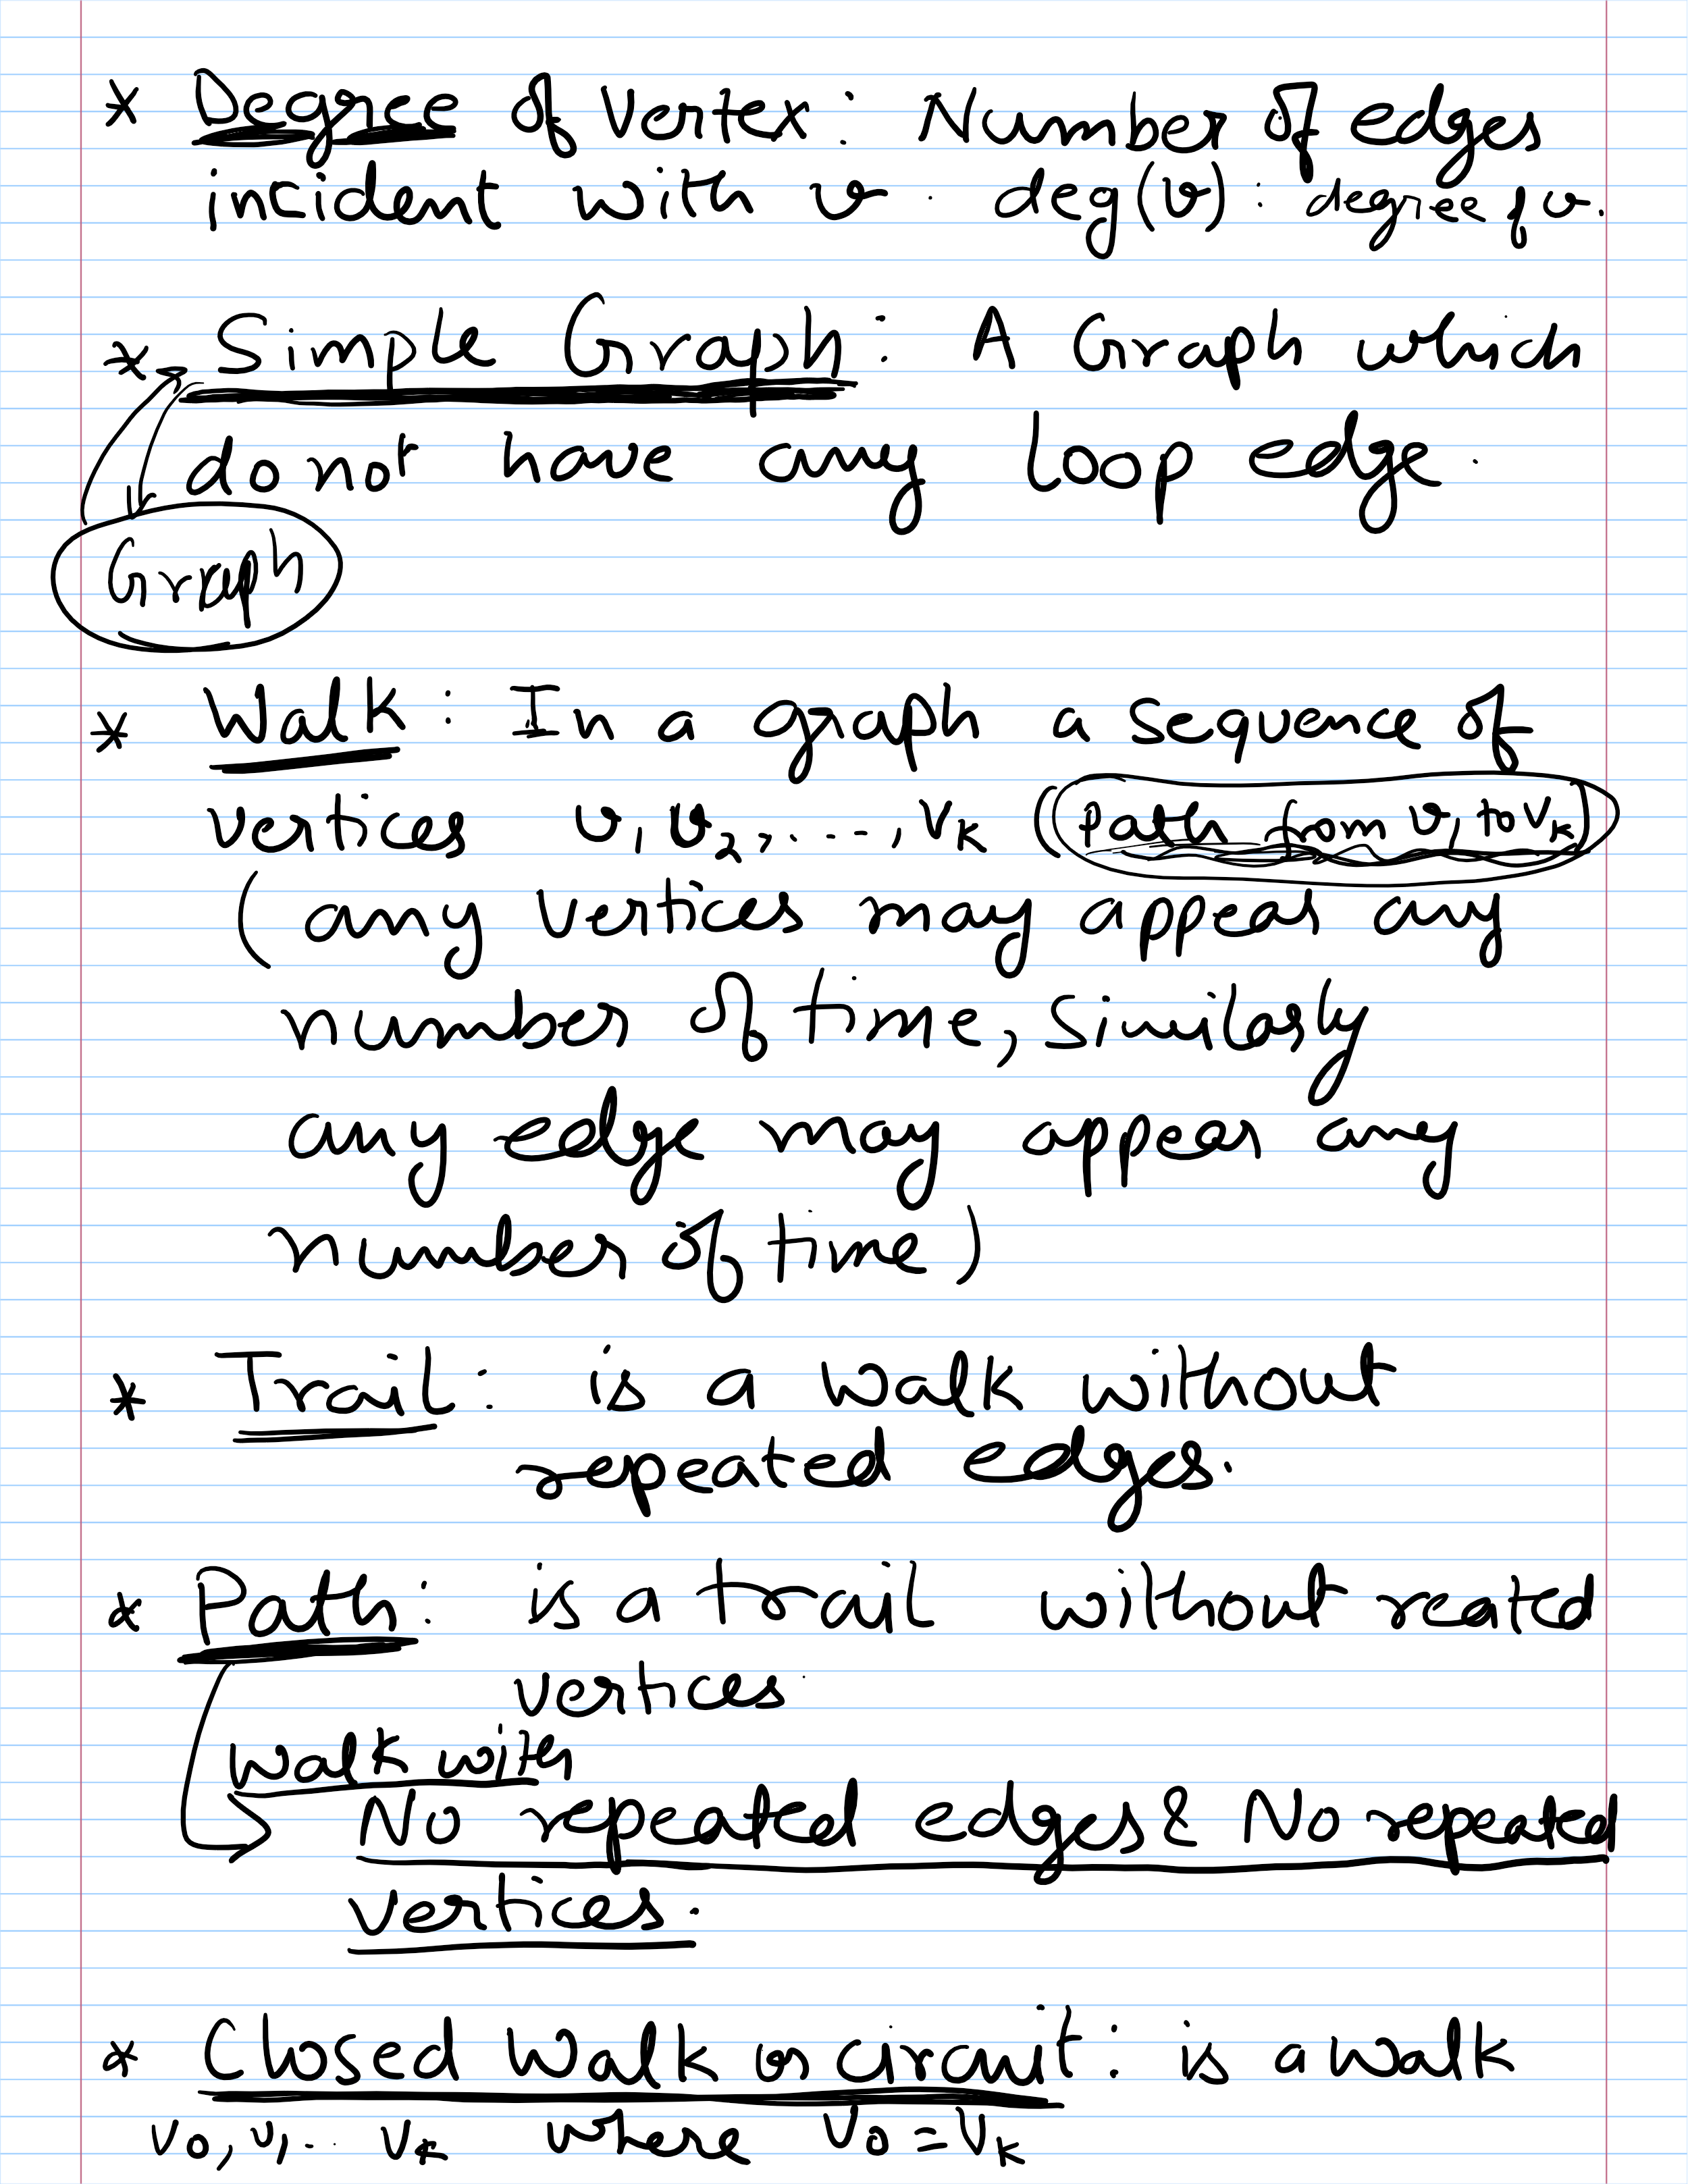 * Degree of Vertex : Number of edges
incident with v . deg(v) : degree of v.
* Simple Graph : A Graph which
do not have any loop edge .
Graph
* Walk : In a graph a sequence of
vertices v1 v2, ....., vk (path from v1 to vk)
(any vertices may appear any
number of time, similarly
any edge may appear any
number of time)
* Trail : is a walk without
repeated edges.
* Path : is a trail without reated
vertices
walk with
No repeated edges & No repeated
vertices.
* Closed Walk or circuit : is a walk
v0, v1 .. vk where v0 = vk